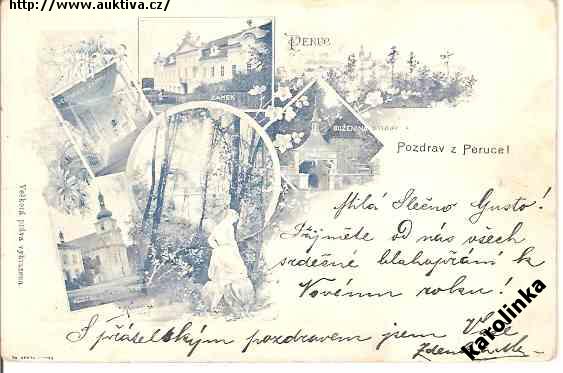 http://www.auktiva.cz/
PERUC
ZÁMEK
BOŽENINA
Pozdrav z Peruce!
Milá Slečno Gusto!
Přijměte od nás všech
srdečné blahopřání k
Novému roku!
S přátelským pozdravem jsem Vaše
Veškerá práva vyhrazena.
karolinka